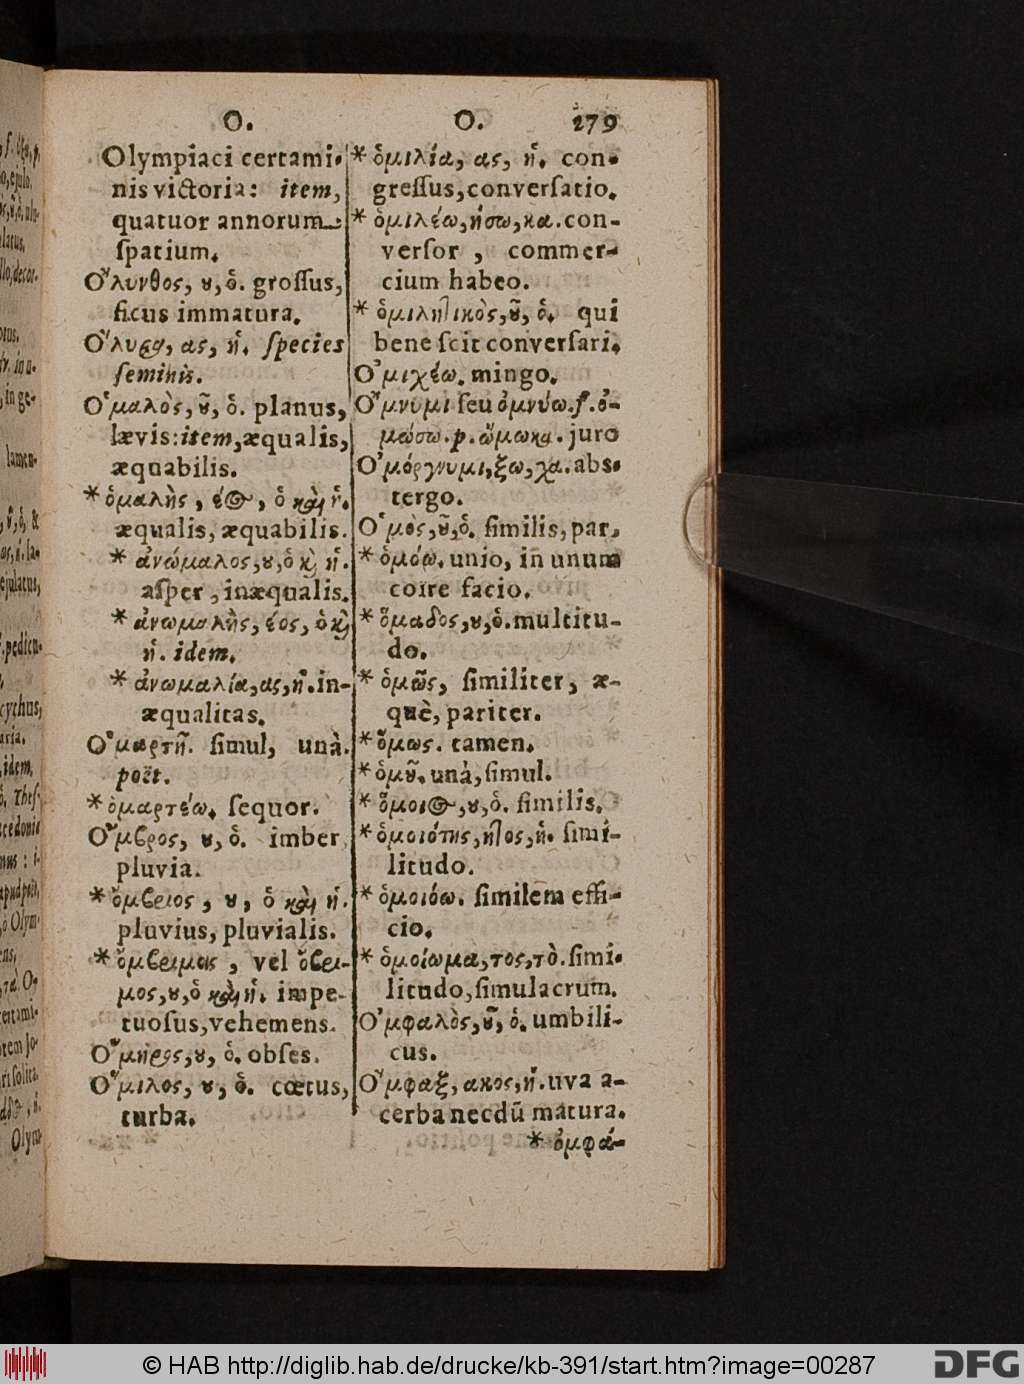 O.
O.
279
Olympiaci certami-
nis victoria: item,
quatuor annorum
spatium.
Ὄλυνθος, ȣ, ὁ. grossus,
ficus immatura.
Ὄλυρα, ας, ἡ. species
seminis.
Ὁμαλὸς, ȣ͂, ὁ. planus,
lævis: item, æqualis,
æquabilis.
* ὁμαλὴς, έος, ὁ καὶ ἡ.
æqualis, æquabilis.
* ἀνώμαλος, ȣ, ὁ κὶ ἡ.
asper, inæqualis.
* ἀνωμαλὴς, έος, ὁ κὶ
ἡ. idem.
* ἀνωμαλία, ας, ἡ. in-
æqualitas.
Ὁμαρτῆ. simul, unà.
poët.
* ὁμαρτέω. sequor.
Ὄμβρος, ȣ, ὁ. imber
pluvia.
* ὄμβριος, ȣ, ὁ καὶ ἡ.
pluvius, pluvialis.
* ὄμβριμος, vel ὄβρι-
μος, ȣ, ὁ καὶ ἡ. impe-
tuosus, vehemens.
Ὅμηρος, ȣ, ὁ. obses.
Ὅμιλος, ȣ, ὁ. cœtus,
turba.
* ὁμιλία, ας, ἡ. con-
gressus, conversatio.
* ὁμιλέω, ήσω, κα. con-
versor, commer-
cium habeo.
* ὁμιλητικὸς, ȣ͂, ὁ. qui
bene scit conversari.
Ὀμιχέω. mingo.
Ὄμνυμι seu ὀμνύω. f. ὀ-
μώσω. p. ὤμωκα. juro
Ὀμόργνυμι, ξω, χα. abs-
tergo.
Ὁμὸς, ȣ͂, ὁ. similis, par,
* ὁμόω. unio, in unum
coire facio.
* ὅμαδος, ȣ, ὁ. multitu-
do.
* ὁμῶς, similiter, æ-
què, pariter.
* ὅμως. tamen.
* ὁμȣ͂. unà, simul.
* ὅμοιος, ȣ, ὁ. similis.
* ὁμοιότης, ητος, ἡ. simi-
litudo.
* ὁμοιόω. similem effi-
cio.
* ὁμοίωμα, τος, τὸ. simi-
litudo, simulacrum.
Ὀμφαλὸς, ȣ͂, ὁ. umbili-
cus.
Ὄμφαξ, ακος, ἡ. uva a-
cerba necdū matura.
* ὀμφά-
Olym
© HAB http://diglib.hab.de/drucke/kb-391/start.htm?image=00287
DFG